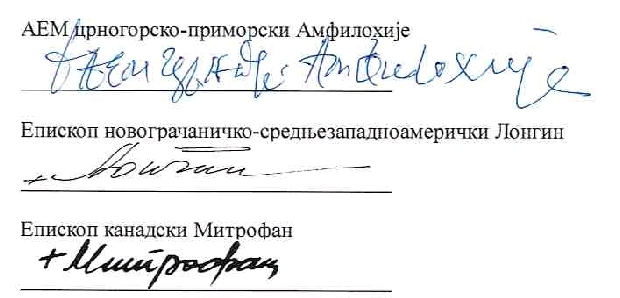 АЕМ црногорско-приморски Амфилохије
+ АЕМ црн-прим Амфилохије
Епископ новограчаничко-средњезападноамерички Лонгин
+ Лонгин
Епископ канадски Митрофан
+ Митрофан